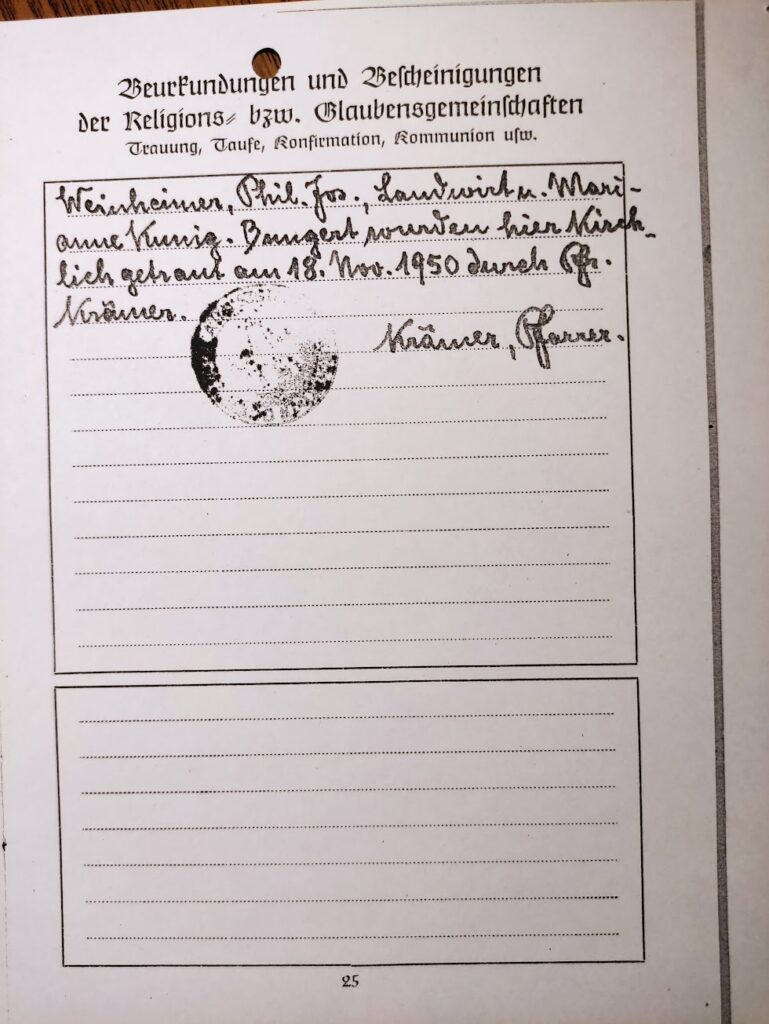 Beurkundungen und Bescheinigungen
der Religions- bzw. Glaubensgemeinschaften
Trauung, Taufe, Konfirmation, Kommunion usw.
Weinheimer, Phil. Jos., Landwirt u. Mari-
anne Kunig. Bangert wurden hier Kirch-
lich getraut am 18. Nov. 1950 durch Pfr.
Krämer.
Krämer, Pfarrer.
25